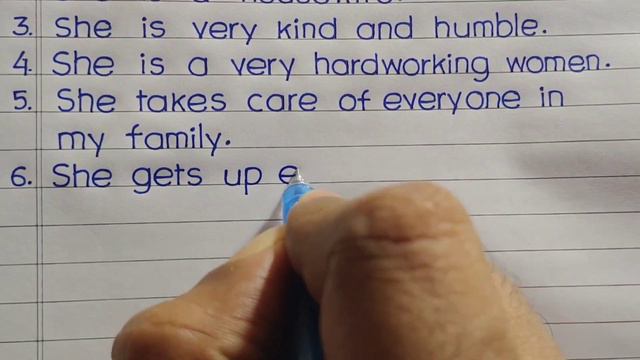 3. She is very kind and humble.
4. She is a very hardworking women.
5. She takes care of everyone in
my family.
6. She gets up e